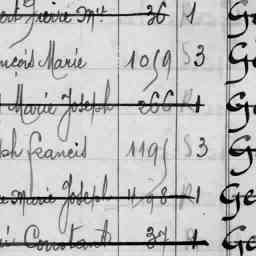 Pierre Mie 36 R1 Ge
François Marie 1059 S3 Ge
Marie Joseph 266 R1 Ge
ph francis 1195 S3 Ge
Marie Joseph 1198 R1 Ge
Constant 37 R1 Ge